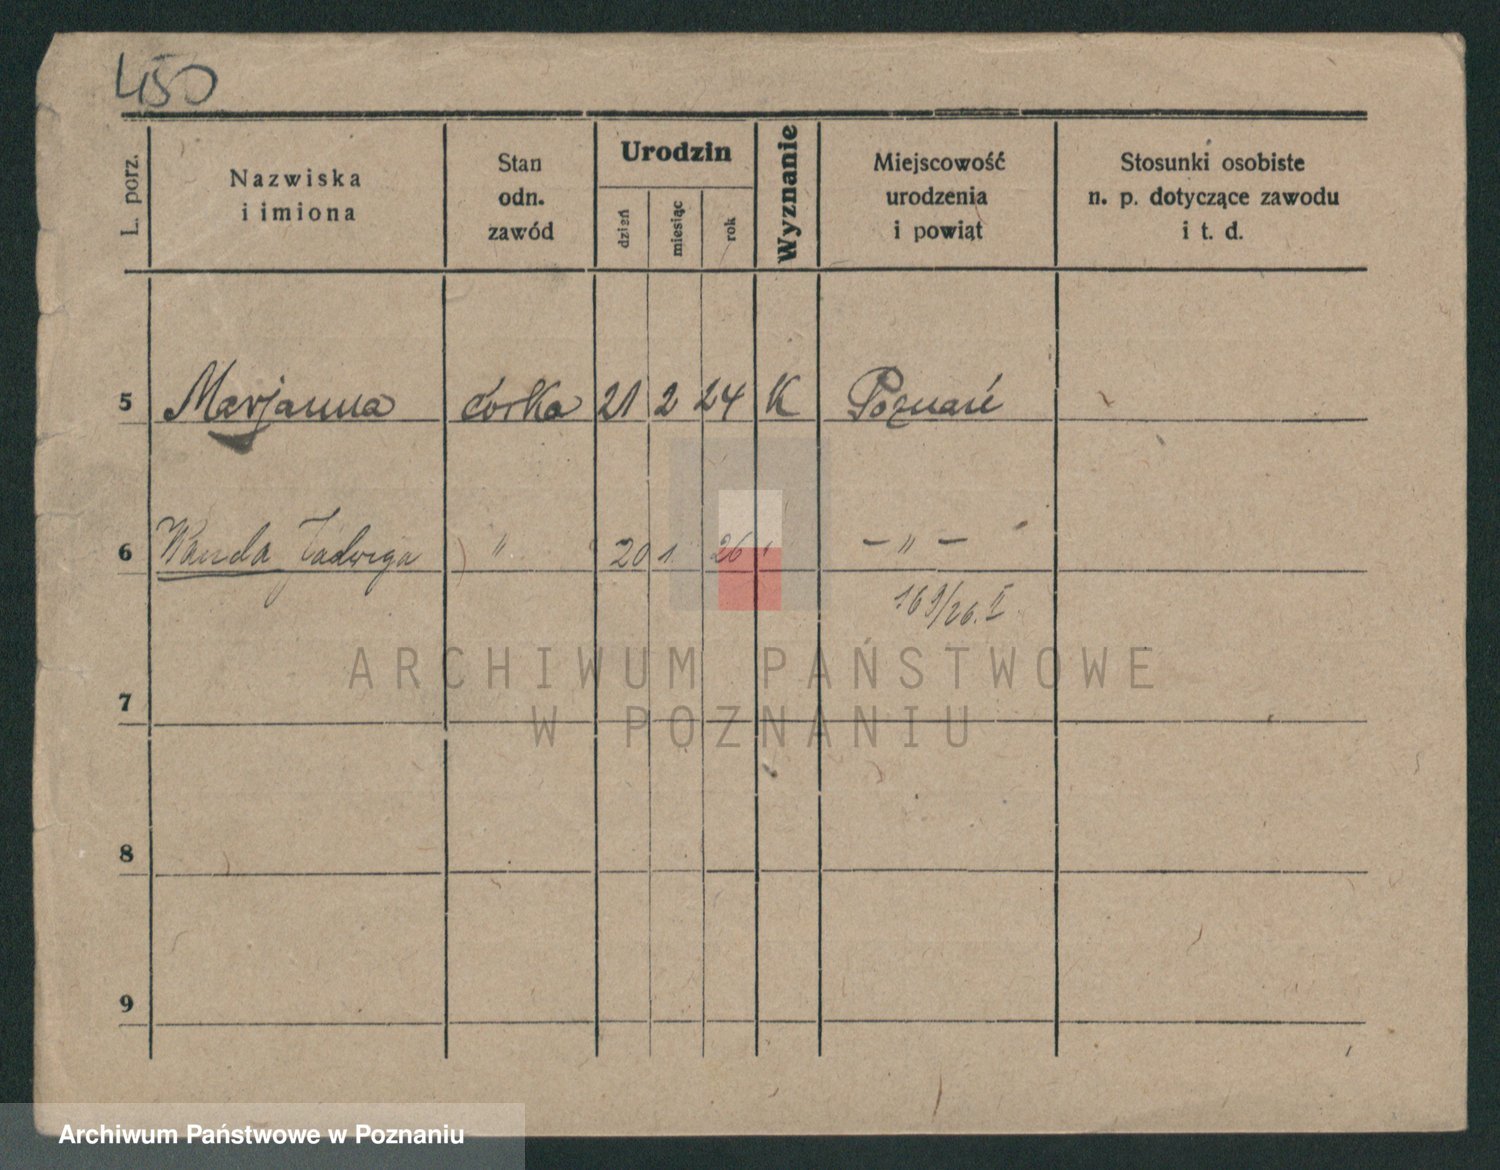 450
L. porz.
Nazwiska
i imiona
Stan
odn.
zawód
Urodzin
dzień
miesiąc
rok
Wyznanie
Miejscowość
urodzenia
i powiąt
Stosunki osobiste
n. p. dotyczące zawodu
i t. d.
5 Marjanna córka 21 2 24 K Poznań
6 Wanda Jadwiga " 20 1. 26 " – " –
169/26. II.
7
8
9
ARCHIWUM PAŃSTWOWE
W POZNANIU
Archiwum Państwowe w Poznaniu